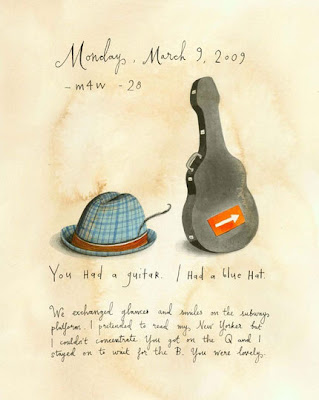 Monday, March 9, 2009
- m4w - 28
You Had a guitar. I Had a blue Hat.
We exchanged glances and smiles on the subway
platform. I pretended to read my New Yorker but
I couldn't concentrate. You got on the Q and I
stayed on to wait for the B. You were lovely.